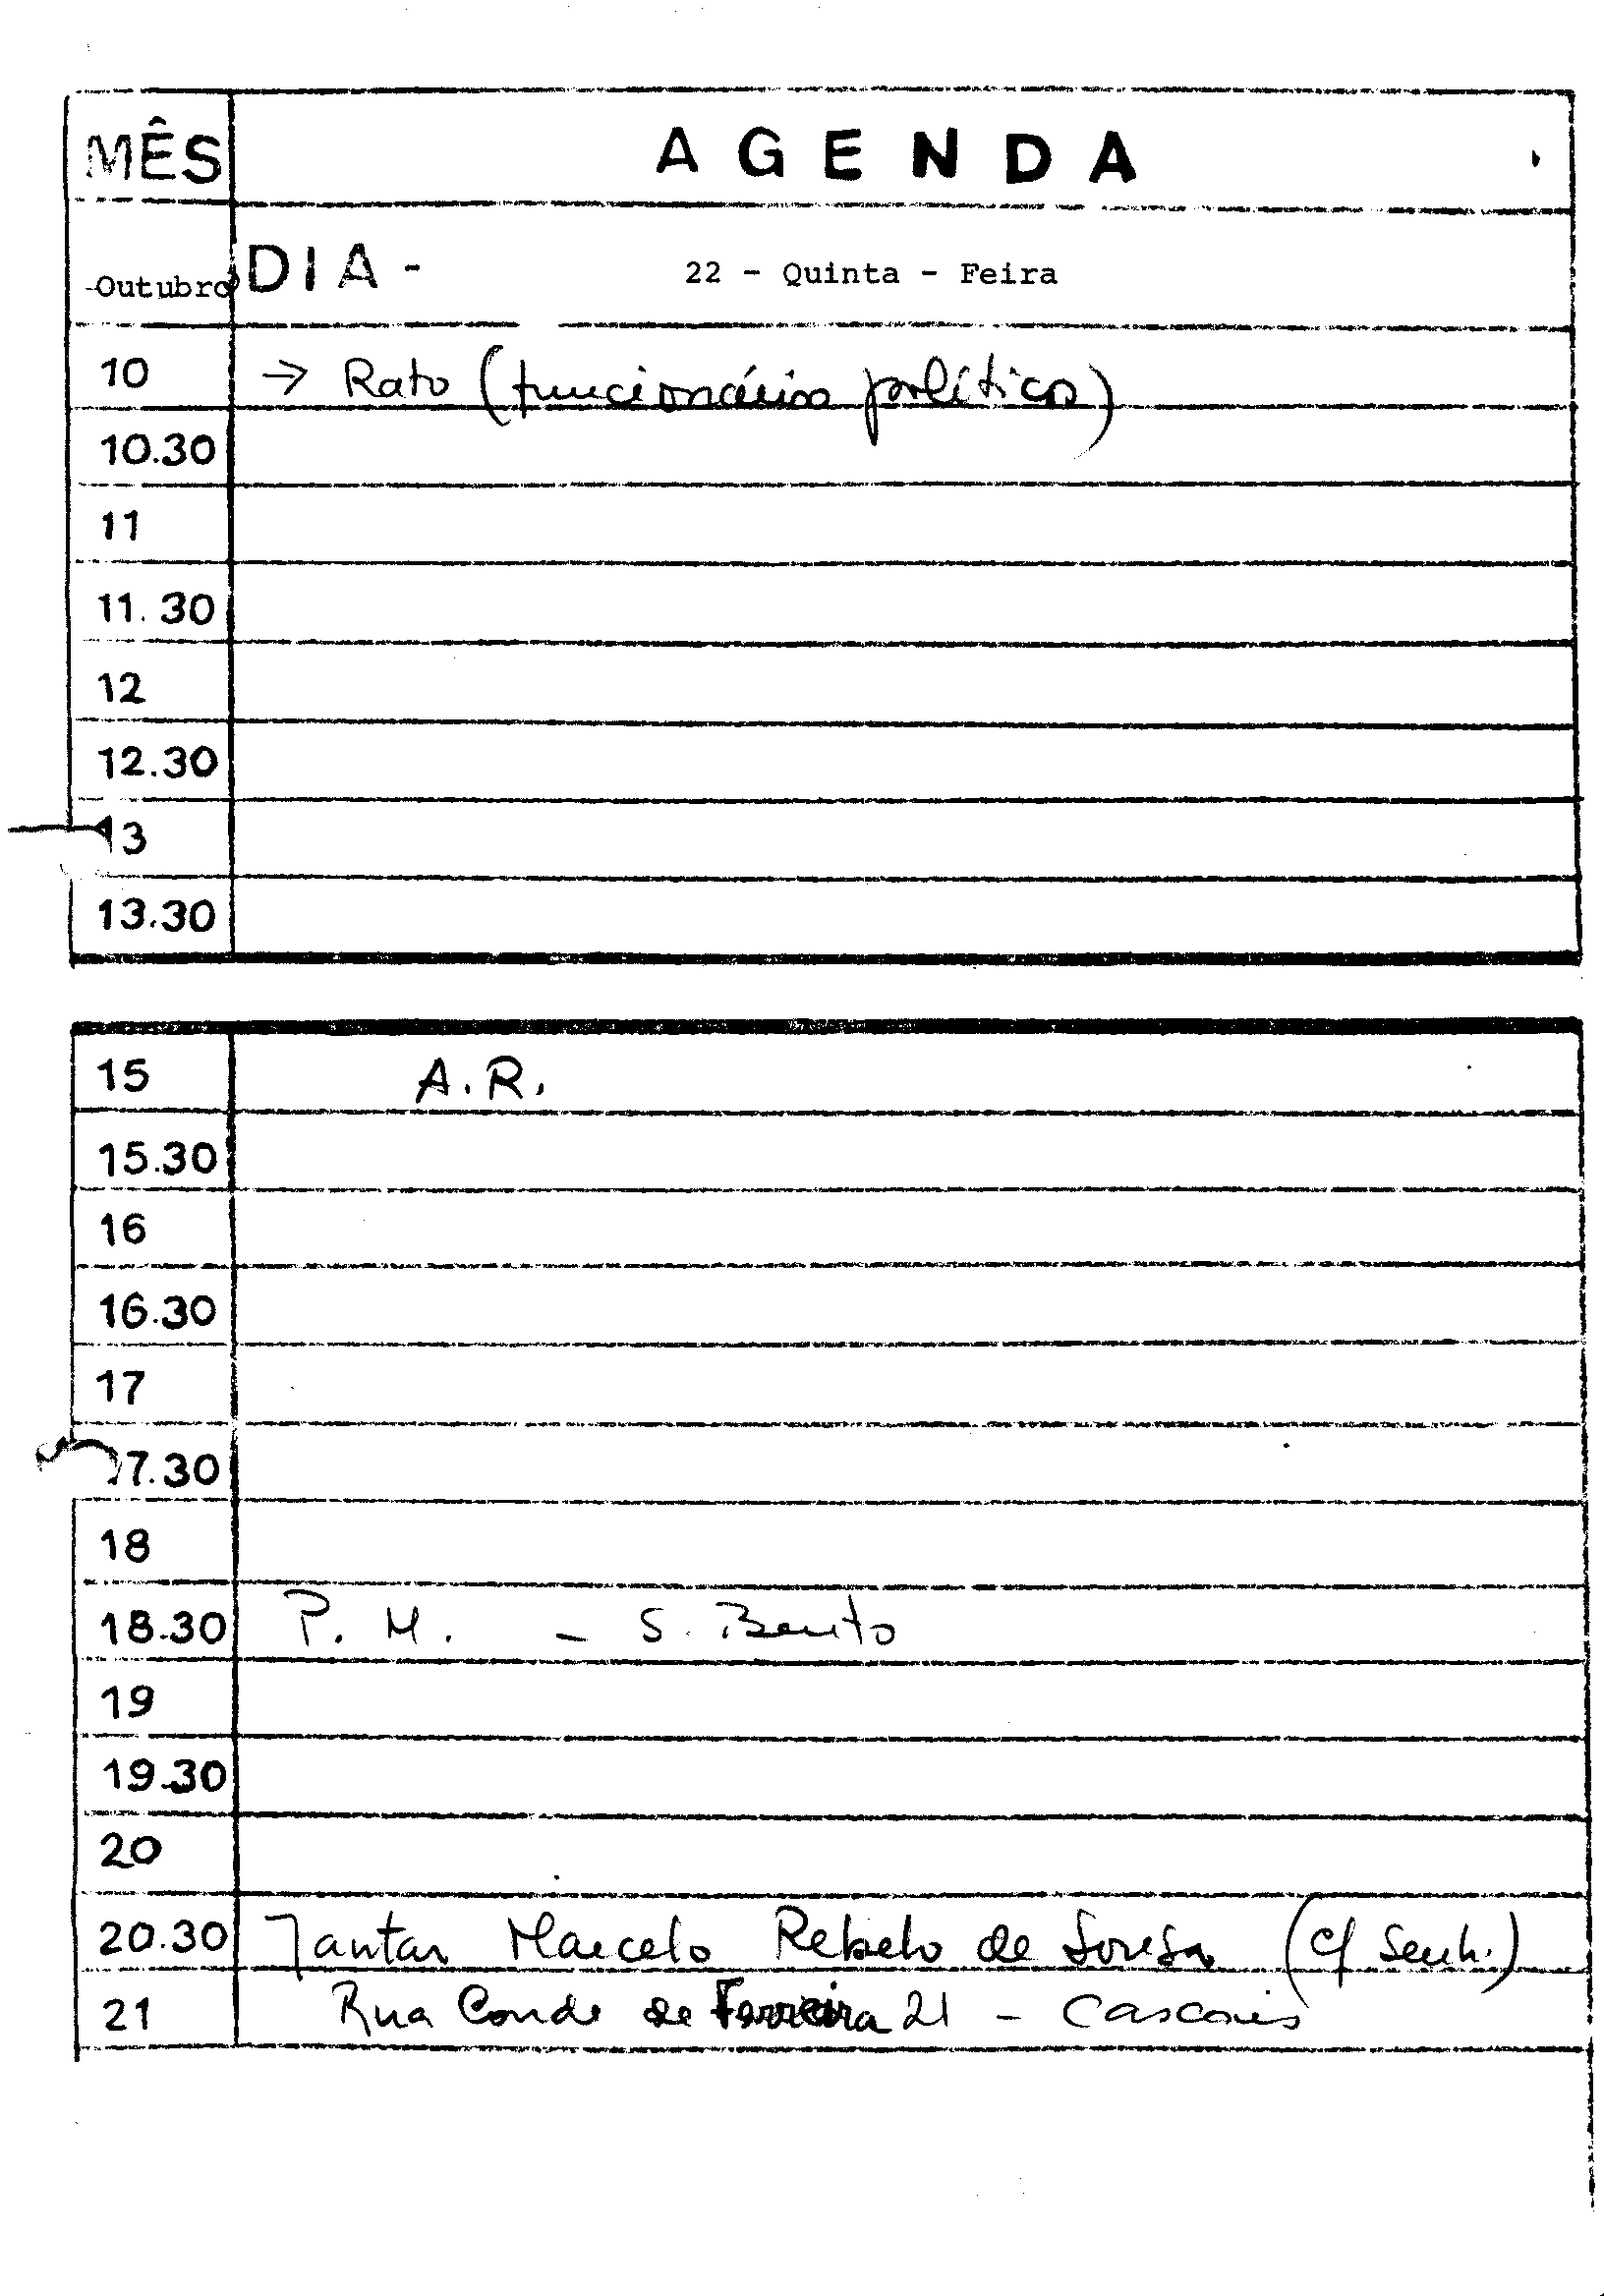 MÊS AGENDA
Outubro DIA - 22 - Quinta - Feira
10 → Rato (funcionários políticos)
10.30
11
11.30
12
12.30
13
13.30
15 A.R.
15.30
16
16.30
17
17.30
18
18.30 P. M. - S. Bento
19
19.30
20
20.30 Jantar Marcelo Rebelo de Sousa (c/ Senh.)
21 Rua Conde de Ferreira 21 - Cascais